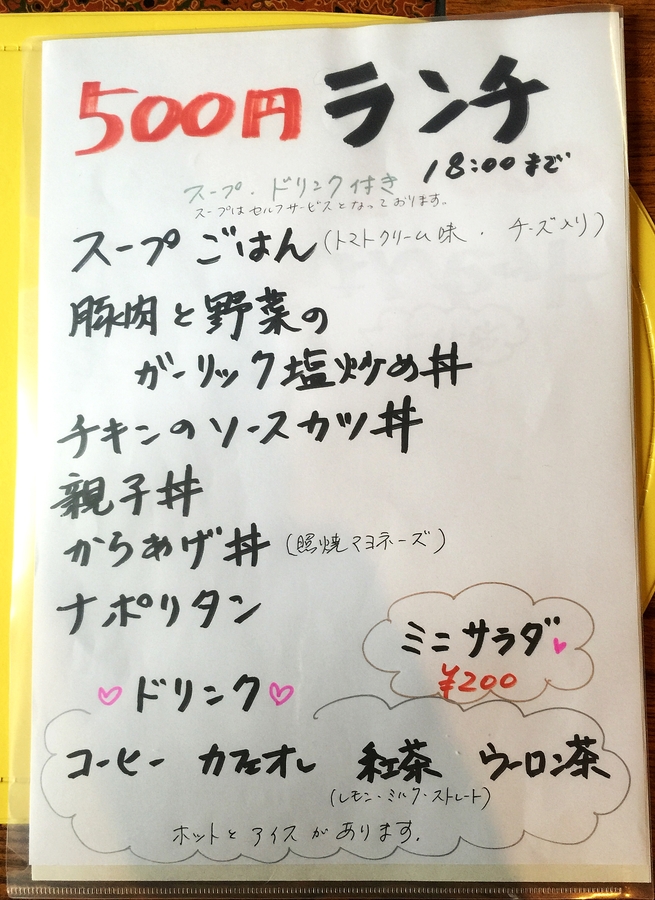 500円ランチ
18:00まで
スープ・ドリンク付き
スープはセルフサービスとなっております。
スープごはん(トマトクリーム味・チーズ入り)
豚肉と野菜の
ガーリック塩炒め丼
チキンのソースカツ丼
親子丼
からあげ丼(照焼マヨネーズ)
ナポリタン
ミニサラダ
¥200
ドリンク
コーヒー カフェオレ 紅茶 ウーロン茶
(レモン・ミルク・ストレート)
ホットとアイスがあります。